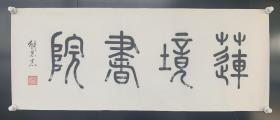 蓮境書院